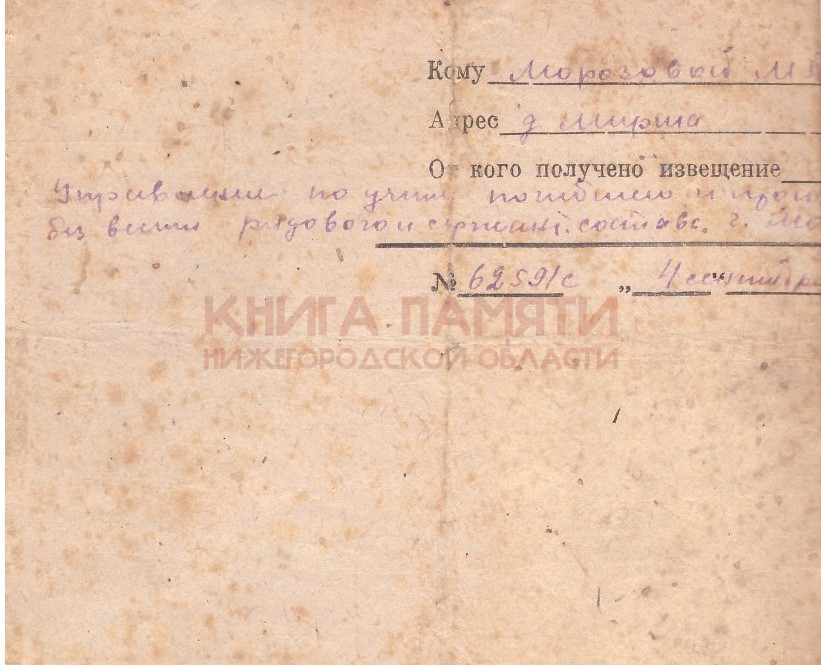 Кому Морозовой М
Адрес д Мирша
От кого получено извещение
Управлении по учету погибшего и
без вести рядового и сержант. состава. г.
№ 62591с „4 сентября
КНИГА ПАМЯТИ
НИЖЕГОРОДСКОЙ ОБЛАСТИ